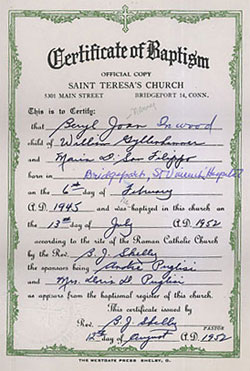 Certificate of Baptism
OFFICIAL COPY
SAINT TERESA'S CHURCH
5301 MAIN STREET BRIDGEPORT 14, CONN.
This is to Certify:
that Beryl Joan Inwood
child of William
and Maria D. San Filippo
born in Bridgeport, St. Vincent's Hospital
on the 6th day of February
A.D. 1945 and was baptized in this church on
the 13th day of July A.D. 1952
according to the rite of the Roman Catholic Church
by the Rev. B. J. Shelly
the sponsors being Puglisi
and Mrs. Doris D. Puglisi
as appears from the baptismal register of this church.
This certificate issued by
Rev. B. J. Shelly
PASTOR
12th day of August A.D. 1952
THE WESTGATE PRESS, SHELBY, O.